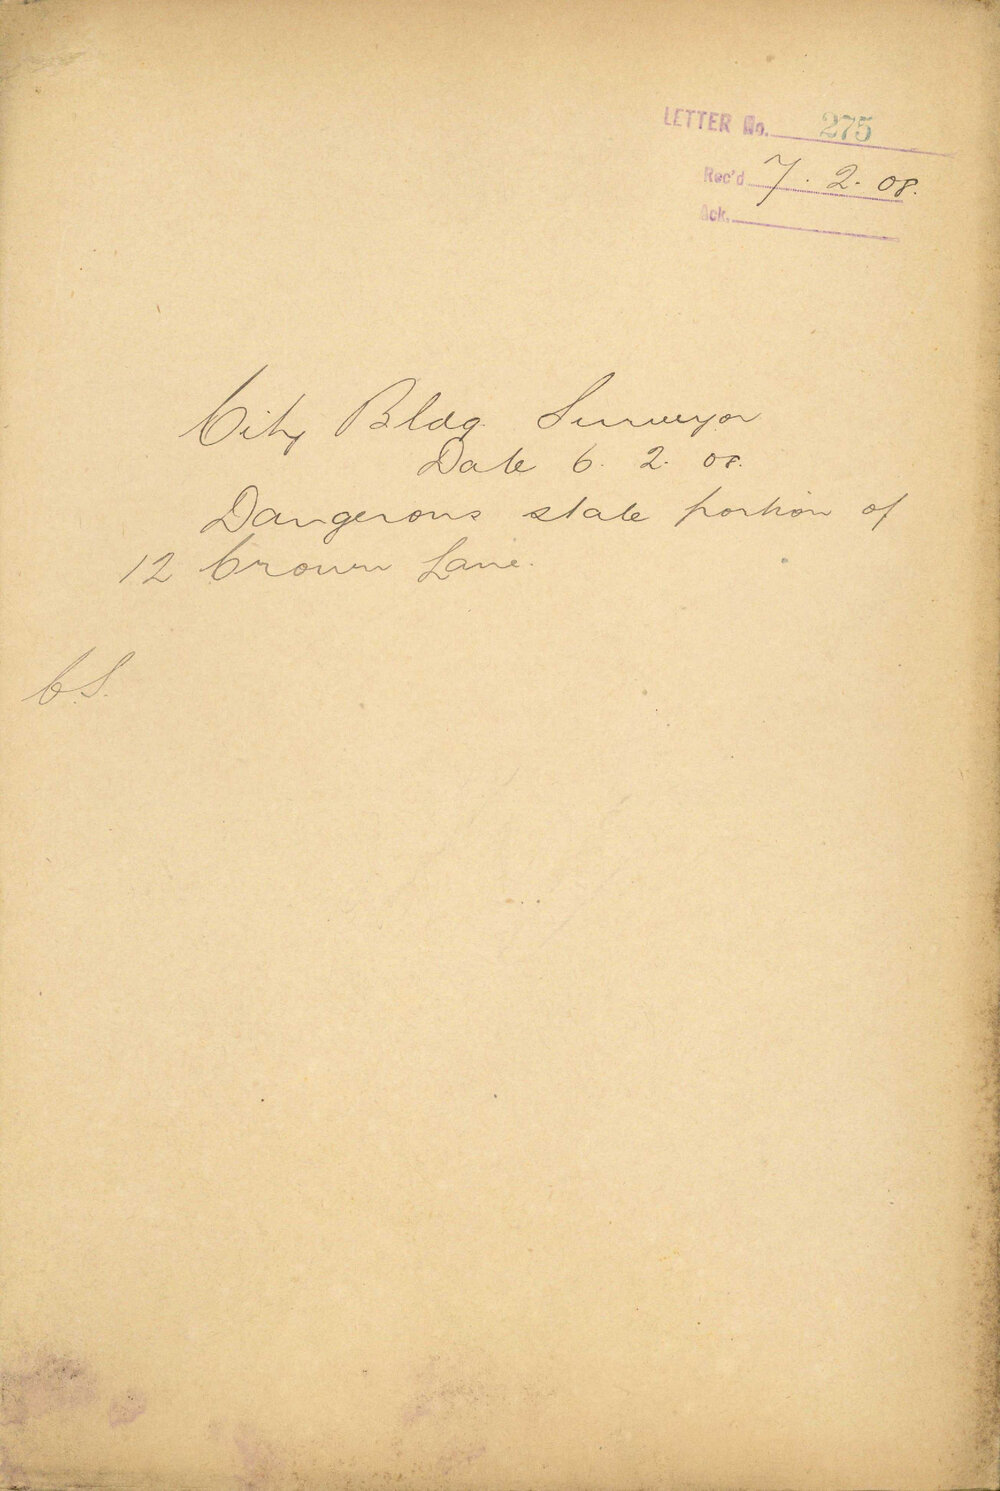 LETTER No. 275
Rec'd 7. 2. 08.
Ack.
City Bldg. Surveyor
Date 6. 2. 08.
Dangerous state portion of
12 Crown Lane.
C.S.